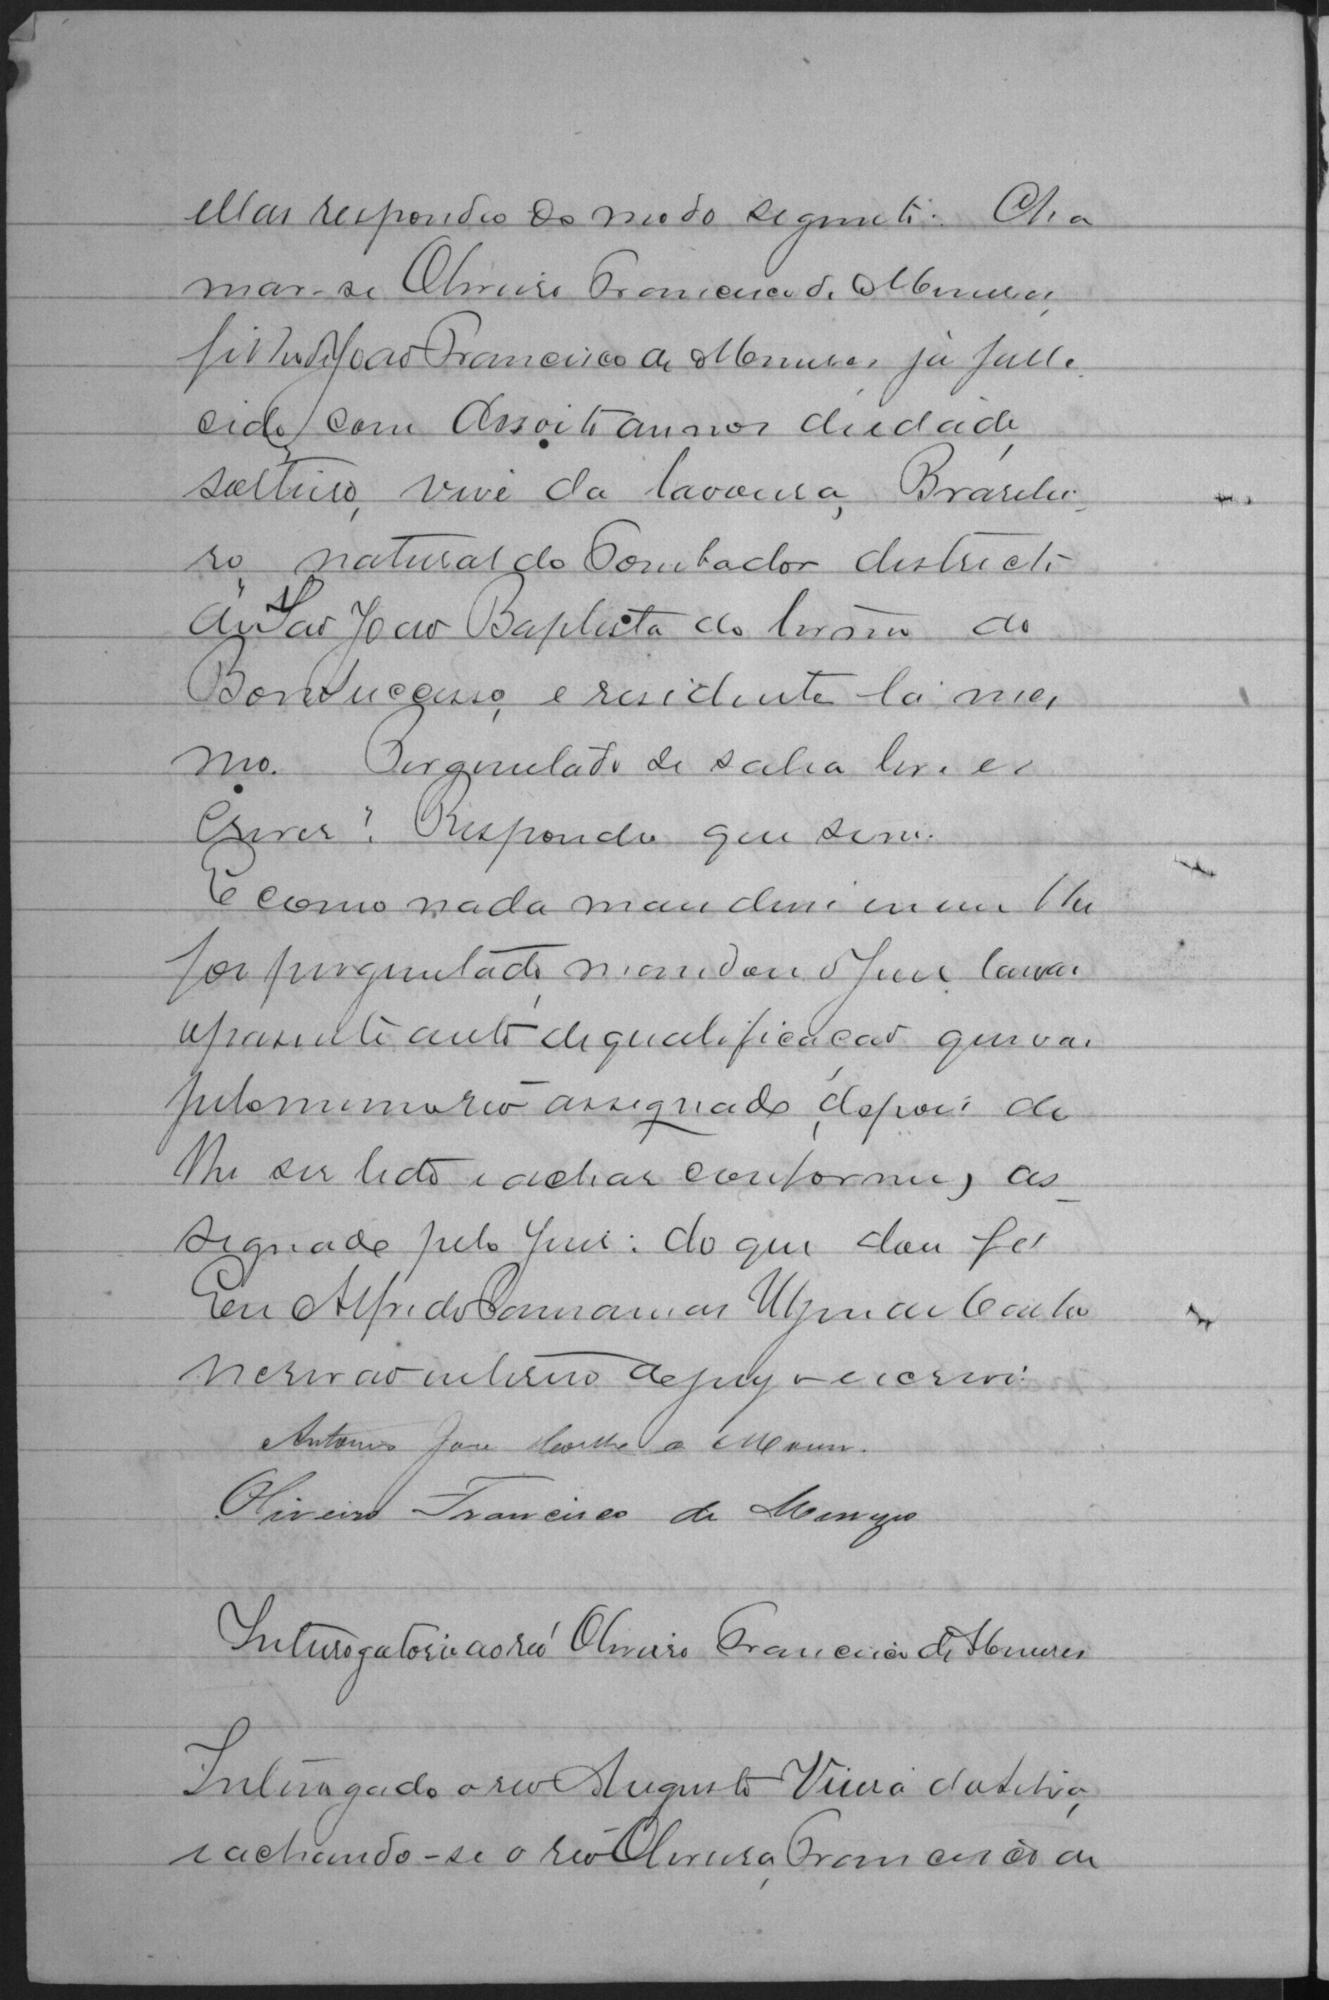 ellas respondeo do modo seguinte: Cha
mar-se Oliveiro Francisco de Menezes,
filho de Joao Francisco de Menezes já falle
cido, com desoito annos de edade,
solteiro, vive da lavoura, Brasilei
ro, natural do Tombador districto
de Sao Joao Baptista do termo do
Bom Sucesso, e residente lá mes
mo. Perguntado se sabia ler e es
crever? Respondeo que sim.
E como nada mais disse nem lhe
foi perguntado, mandou o Juiz lavrar
o presente auto de qualificacao que vai
pelo mesmo reo assignado, depois de
lhe ser lido e achar conforme, as
signado pelo Juiz: do que dou fé
Eu Alfredo
escrivao interino do jury o escrevi.
Antonio José
Oliveiro Francisco de Menezes
Interrogatorio ao réo Oliveiro Francisco de Menezes
Interrogado o reo Augusto Vieira da Silva,
e achando-se o reo Oliveiro Francisco de